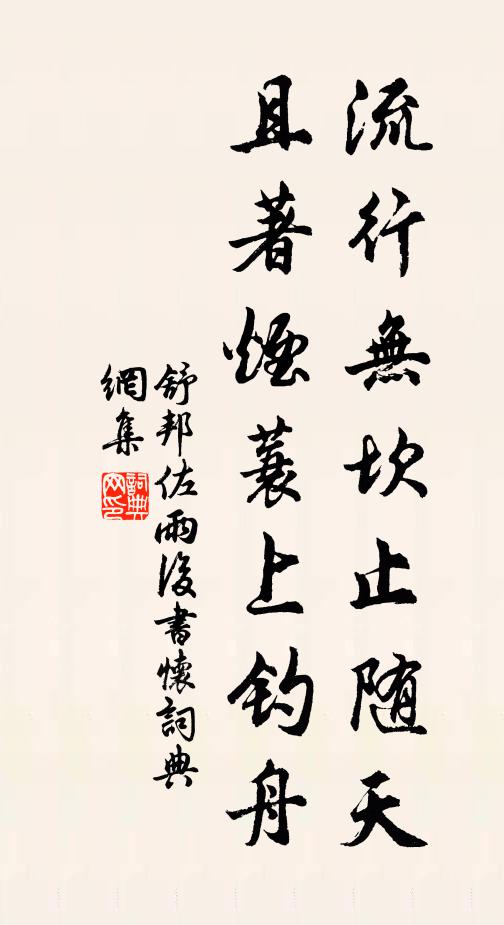 流行無坎止随天
且著煙蓑上钓舟
舒邦佐雨後書懷詞典
網集
詞典
网印